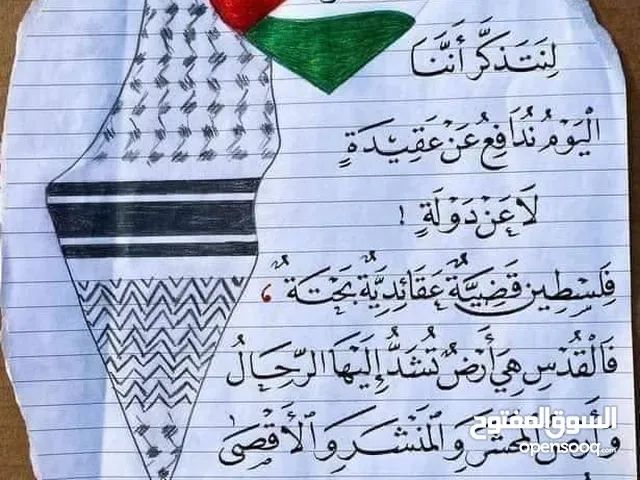 لِنَتَذَكَّر أَنَّنَا
الْيَوْمُ نُدَافِعُ عَنْ عَقِيدَةٍ
لَا عَنْ دَوْلَةٍ !
فِلَسْطِين قَضِيَّةٌ عَقَائِدِيَّةٌ بَحْتَةٌ ،
فَالْقُدْسِ هِيَ أَرْضٌ تُشَدُّ إِلَيْهَا الرِّحَالُ
وَأَرْضُ الْمَحْشَرِ وَالْمَنْشَرِ وَالْأَقْصَى
السوق المفتوح
opensooq.com